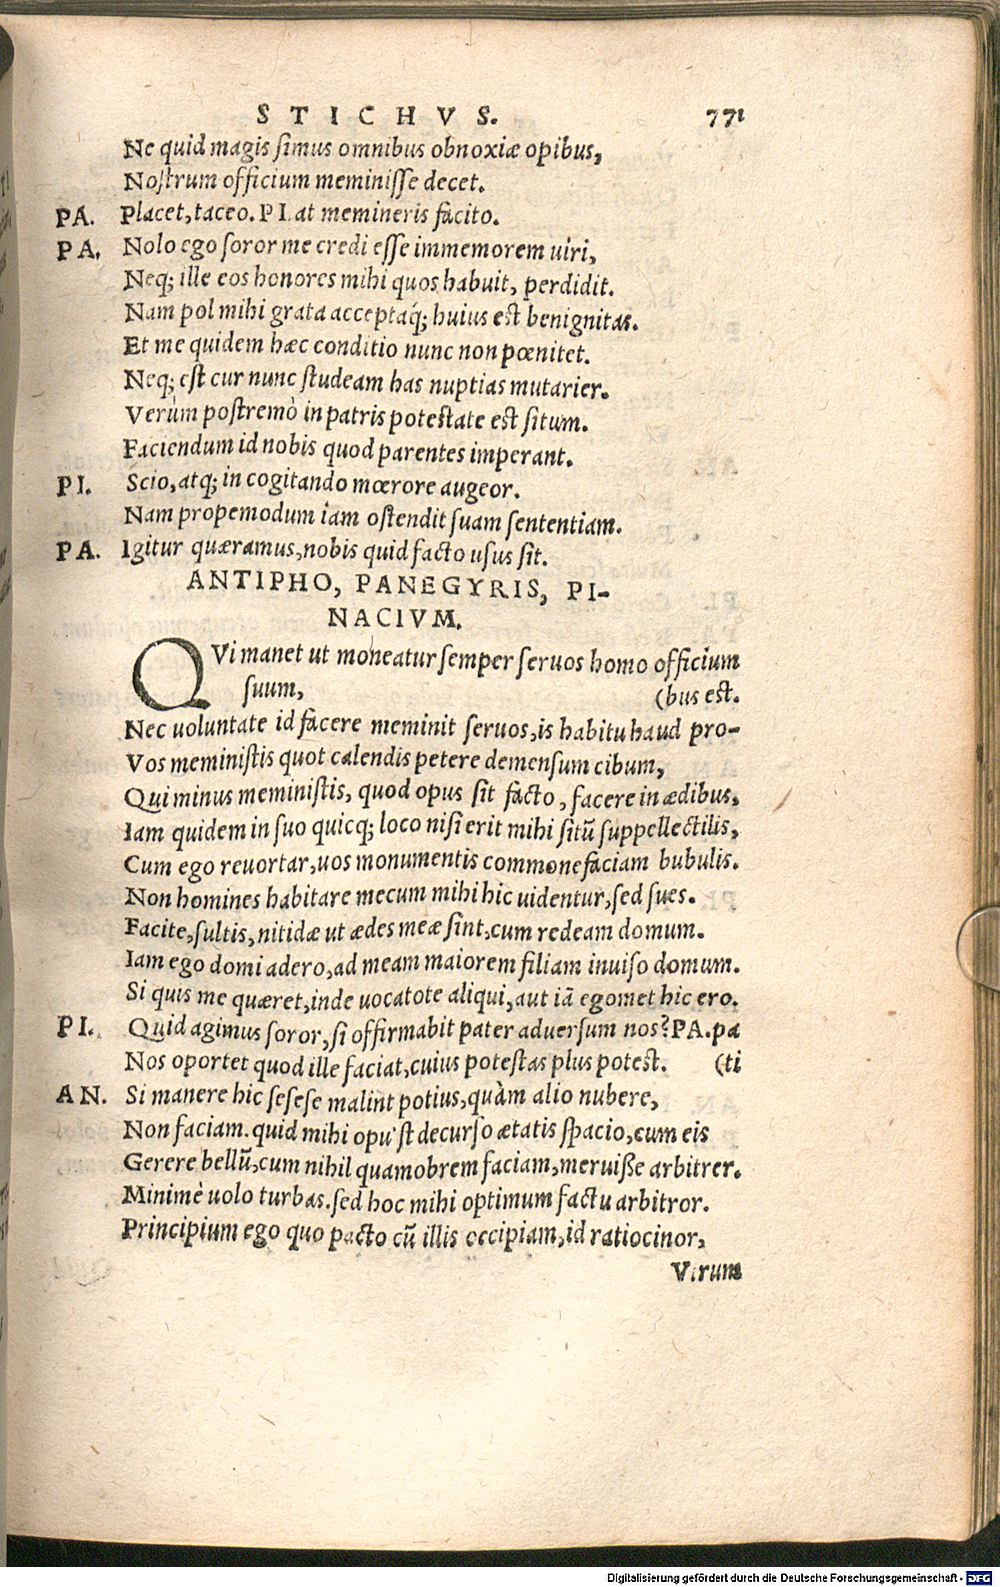 STICHVS. 771
Ne quid magis simus omnibus obnoxiæ opibus,
Nostrum officium meminisse decet.
PA. Placet, taceo. PI. at memineris facito.
PA. Nolo ego soror me credi esse immemorem uiri,
Neq; ille eos honores mihi quos habuit, perdidit.
Nam pol mihi grata acceptáq; huius est benignitas.
Et me quidem hæc conditio nunc non pœnitet.
Neq; est cur nunc studeam has nuptias mutarier.
Verùm postremò in patris potestate est situm.
Faciendum id nobis quod parentes imperant.
PI. Scio, atq; in cogitando mœrore augeor.
Nam propemodum iam ostendit suam sententiam.
PA. Igitur quæramus, nobis quid facto usus sit.
ANTIPHO, PANEGYRIS, PI-
NACIVM.
QVi manet ut moneatur semper seruos homo officium
suum, (bus est.
Nec uoluntate id facere meminit seruos, is habitu haud pro-
Vos meministis quot calendis petere demensum cibum,
Qui minus meministis, quod opus sit facto, facere in ædibus,
Iam quidem in suo quicq; loco nisi erit mihi sitū suppellectilis,
Cum ego reuortar, uos monumentis commonefaciam bubulis.
Non homines habitare mecum mihi hic uidentur, sed sues.
Facite, sultis, nitidæ ut ædes meæ sint, cum redeam domum.
Iam ego domi adero, ad meam maiorem filiam inuiso domum.
Si quis me quæret, inde uocatote aliqui, aut iā egomet hic ero.
PI. Quid agimus soror, si offirmabit pater aduersum nos? PA. pa
Nos oportet quod ille faciat, cuius potestas plus potest. (ti
AN. Si manere hic sesese malint potius, quàm alio nubere,
Non faciam. quid mihi opu'st decurso ætatis spacio, cum eis
Gerere bellū, cum nihil quamobrem faciam, meruisse arbitrer.
Minimè uolo turbas. sed hoc mihi optimum factu arbitror.
Principium ego quo pacto cū illis occipiam, id ratiocinor,
Virum
Digitalisierung gefördert durch die Deutsche Forschungsgemeinschaft - DFG